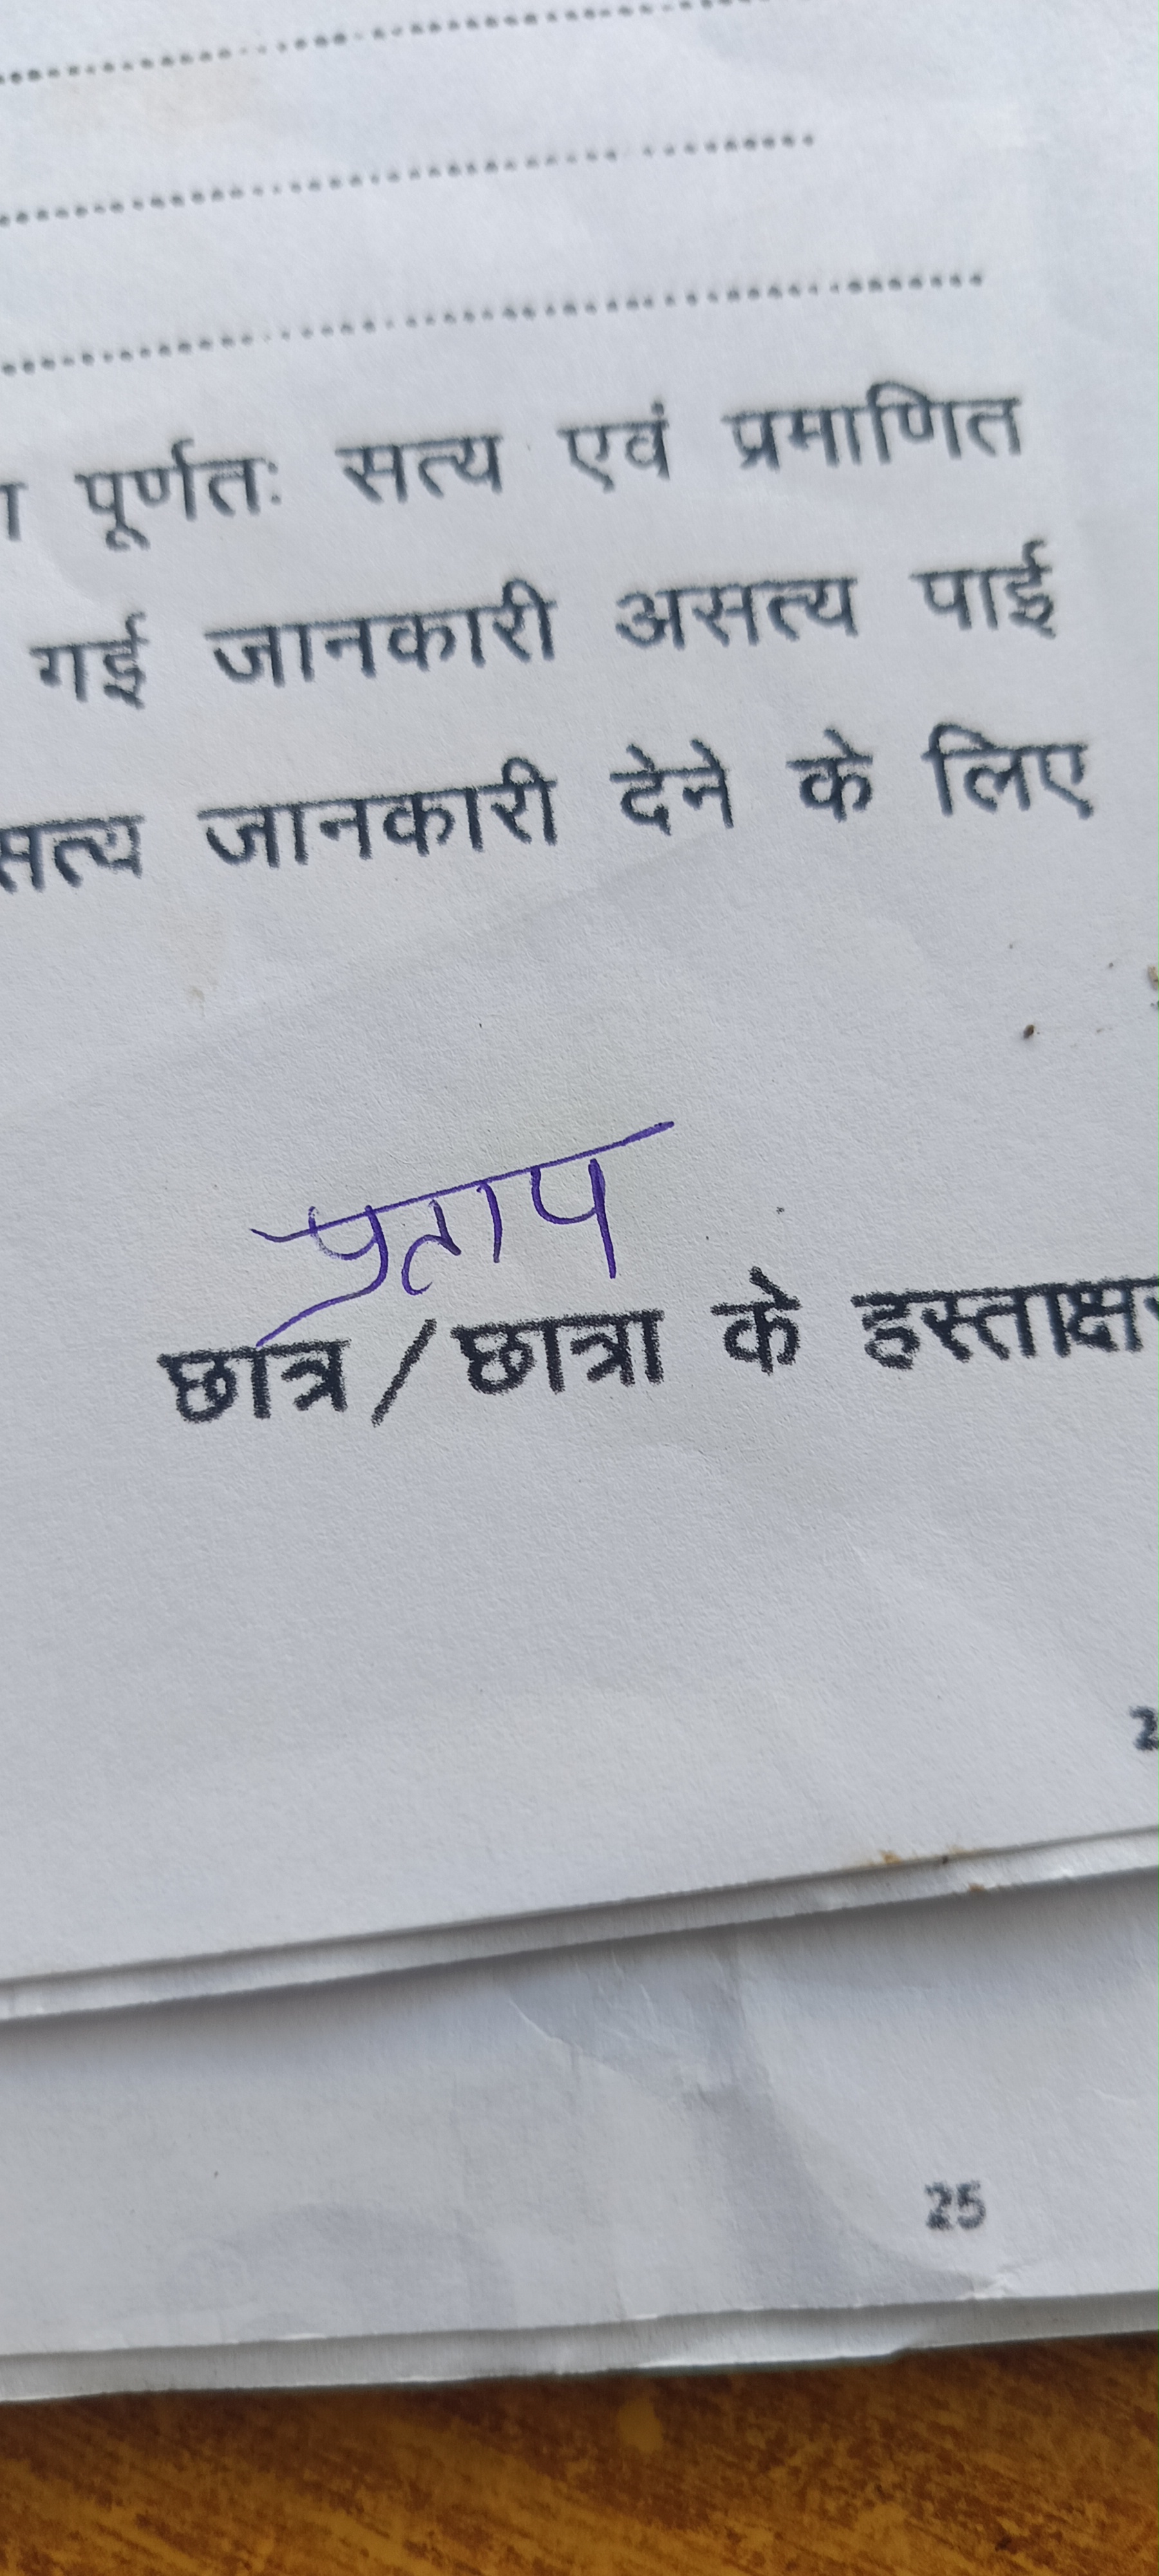 पूर्णतः सत्य एवं प्रमाणित
गई जानकारी असत्य पाई
सत्य जानकारी देने के लिए
प्रताप
छात्र / छात्रा के हस्ताक्षर
25